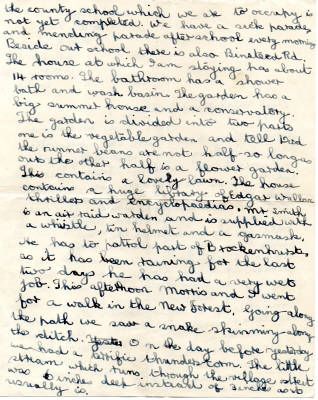 the country school which we are to occupy is
not yet completed. We have a sick parade,
and mending parade after school every morning
Beside out school there is also Binsteed Rd.
The house at which I am staying has about
14 rooms. The bathroom has a shower
bath and wash basin. The garden has a
big summer house and a conservatory.
The garden is divided into two parts
one is the vegetable garden and tell Dad
the runner beans are not half so long as
ours the other half is a flower garden.
This contains a lovely lawn. The house
contains a huge library of Edgar Wallace
thrillers and encyclopaedias, Mr. Smith
is an air raid warden and is supplied with
a whistle, tin helmet and a gasmask,
He has to patrol part of Brockenhurst,
as it has been raining for the last
two days he has had a very wet
job. This afternoon Morris and I went
for a walk in the New Forest, going along
the path we saw a snake skimming along
the ditch. On the day before yesterday
we had a terrific thunderstorm. The little
stream which runs through the village street
was inches deep instead of 3 inches as it
usually is.